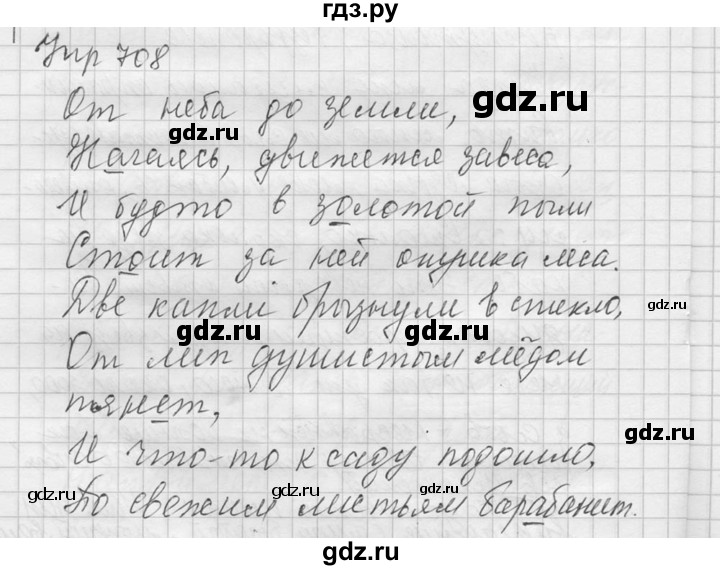 гдз.ру
Упр 708
От неба до земли,
Качаясь, движется завеса,
И будто в золотой пыли
Стоит за ней опушка леса.
Две капли брызнули в стекло,
От лип душистым мёдом
тянет,
И что-то к саду подошло,
По свежим листьям барабанит.
gdz.ru
gdz.ru
gdz.ru
gdz.ru
gdz.ru
gdz.ru
gdz.ru
gdz.ru
gdz.ru
gdz.ru
gdz.ru